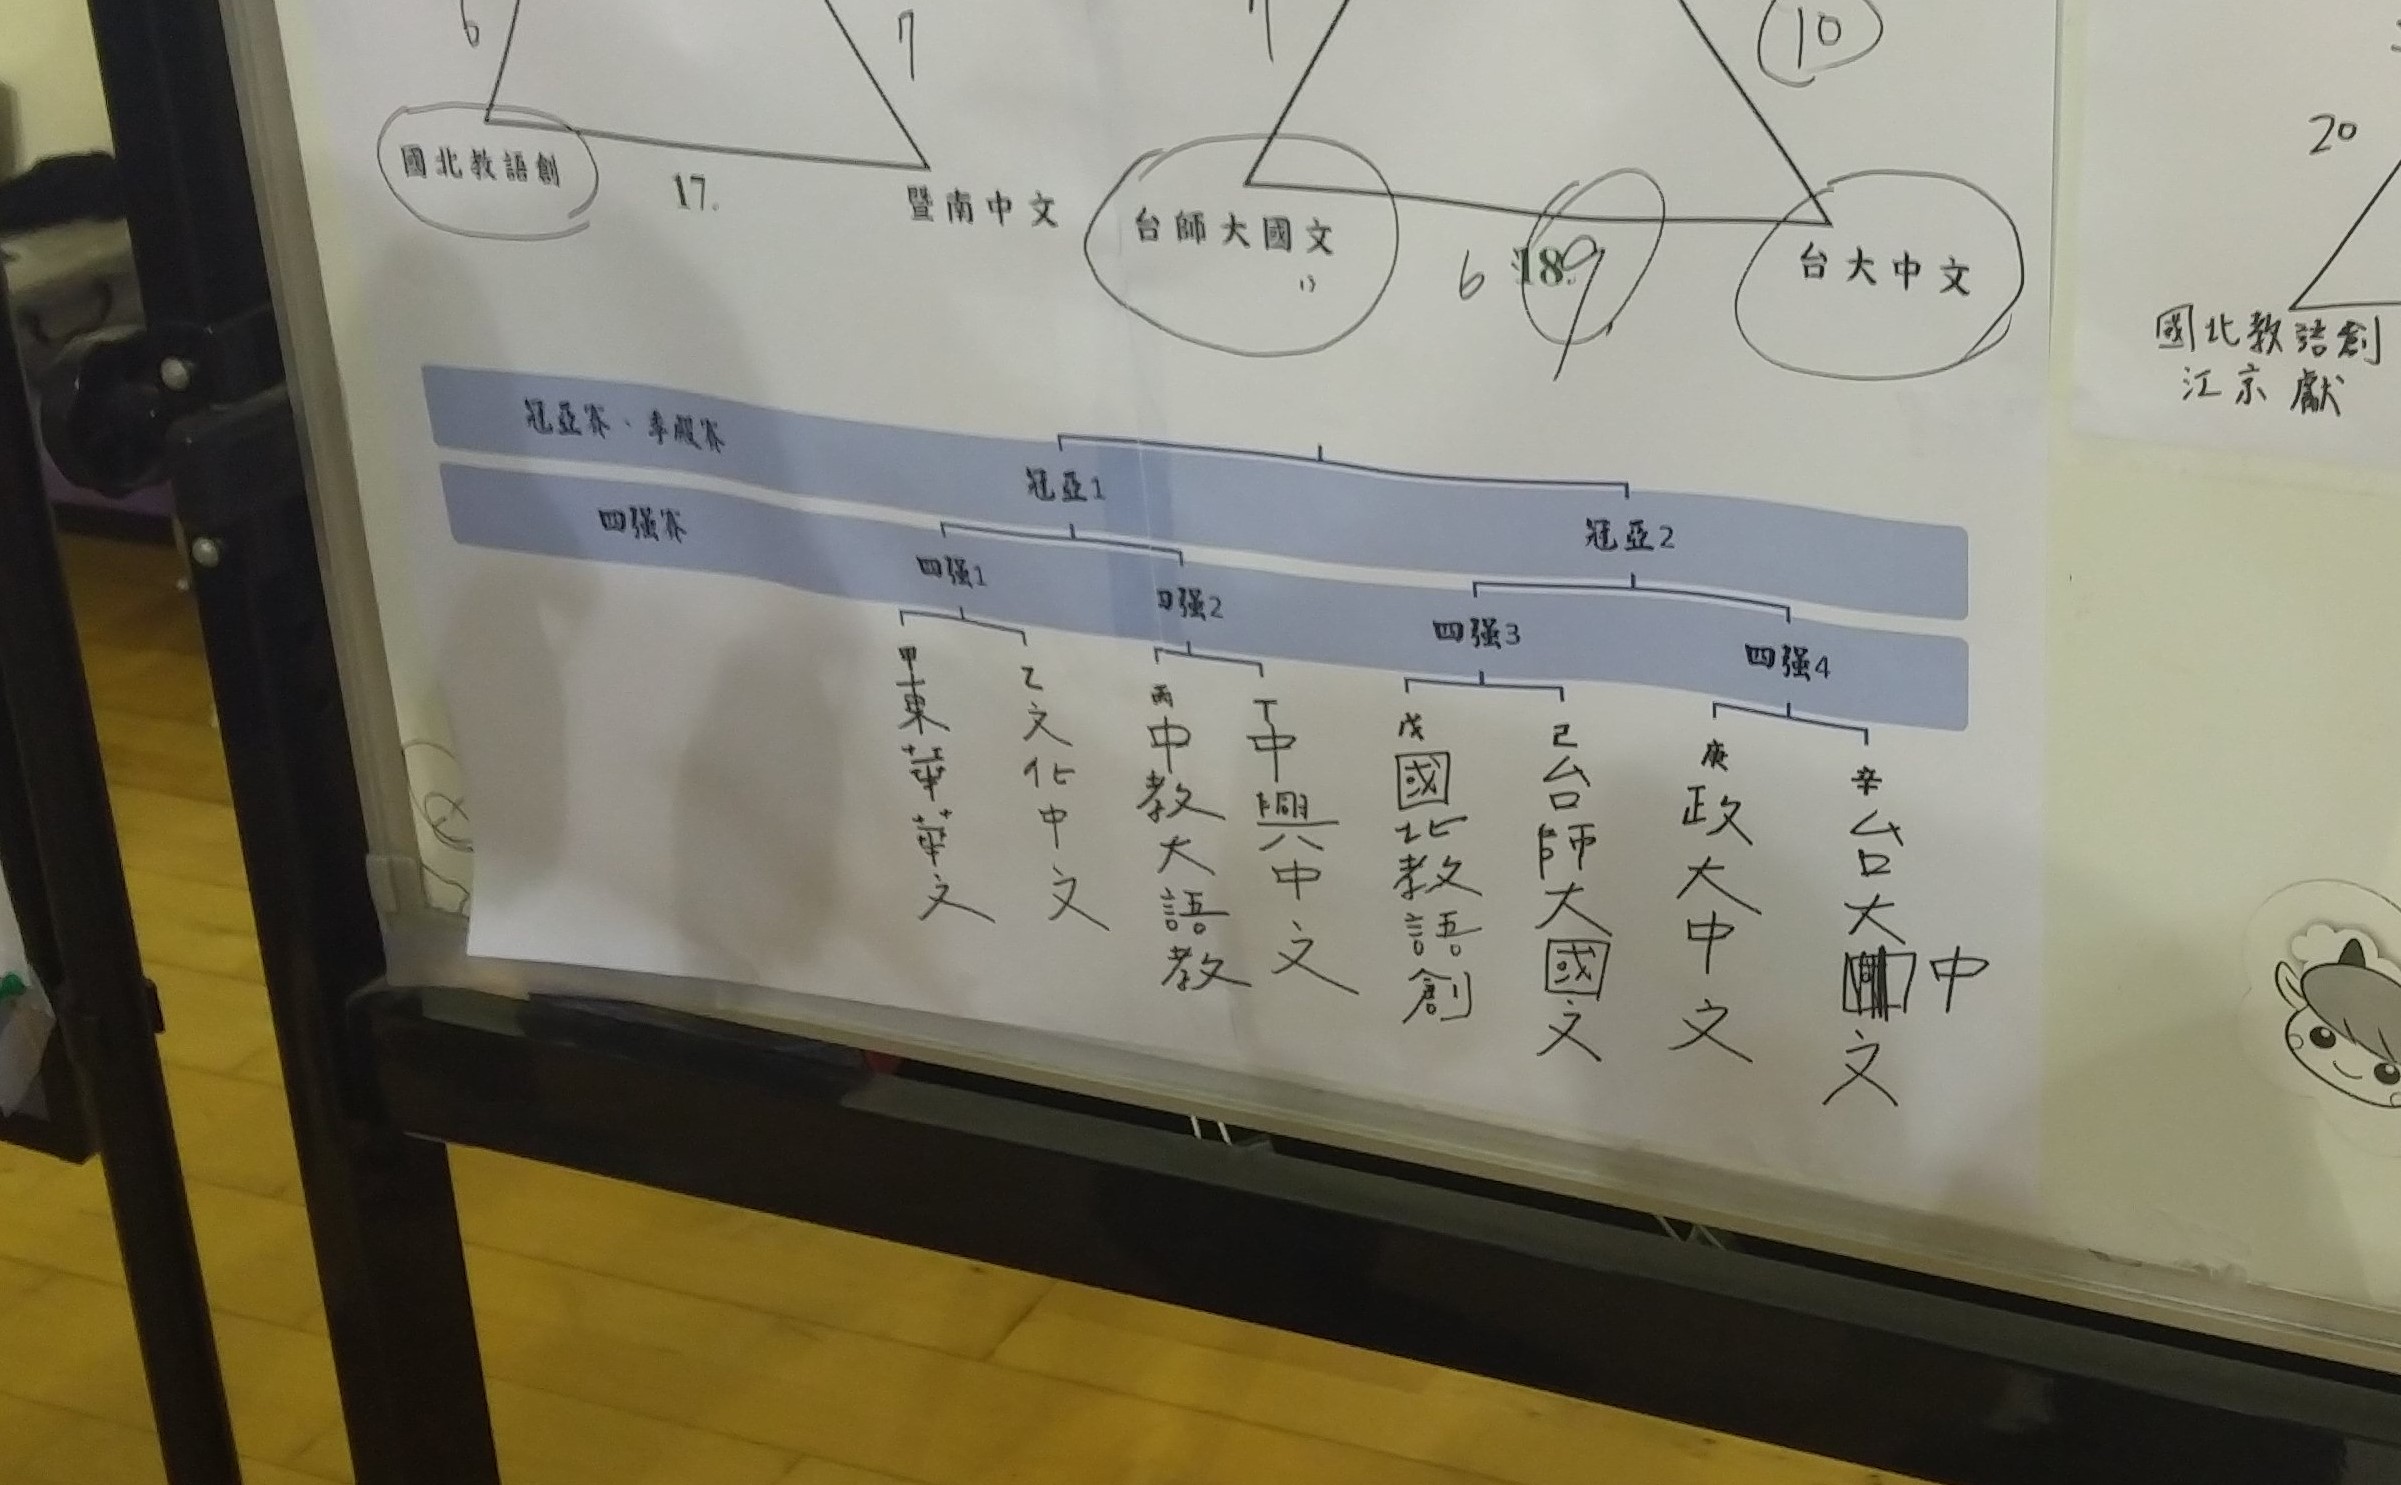 6
7
7
10
20
國北教語創
17.
暨南中文
台師大國文
13
6
18.
9
台大中文
國北教語創
江京獻
冠亞賽、季殿賽
冠亞1
冠亞2
四強賽
四強1
四強2
四強3
四強4
甲東華華文
乙文化中文
丙中教大語教
丁中興中文
戊國北教語創
己台師大國文
庚政大中文
辛台大中文